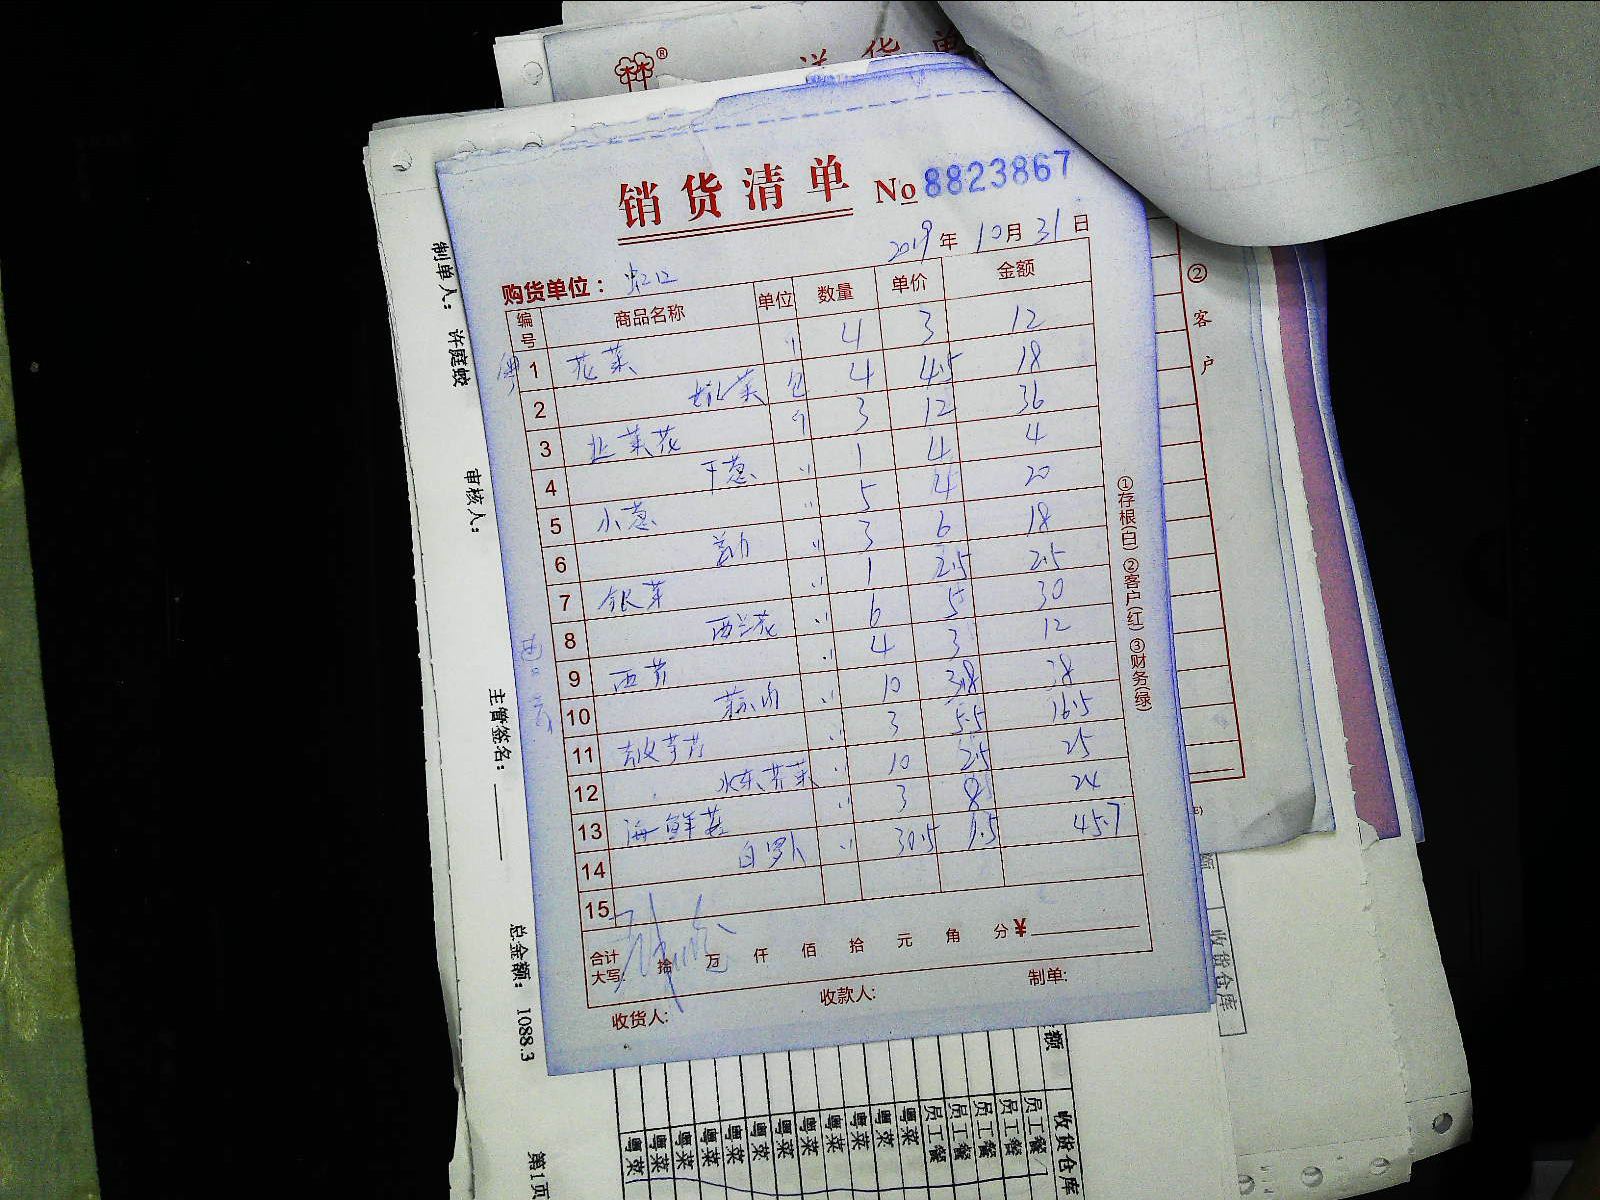 林®
送货单
销货清单 No 8823867
2019年10月31日
购货单位：虹口
编号 商品名称 单位 数量 单价 金额
1 花菜 〃 4 3 12
2 包 4 4.5 18
3 韭菜花 〃 3 12 36
4 干葱 〃 1 4 4
5 小葱 〃 5 4 20
6 〃 3 6 18
7 银芽 〃 1 2.5 2.5
8 西兰花 〃 6 5 30
9 西芹 〃 4 3 12
10 〃 10 3.8 38
11 〃 3 5.5 16.5
12 水东芥菜 〃 10 2.5 25
13 海鲜菇 〃 3 8 24
14 白罗卜 〃 30.5 1.5 45.7
15
合计大写: 拾 万 仟 佰 拾 元 角 分 ¥
收货人: 收款人: 制单:
①存根(白) ②客户(红) ③财务(绿)
② 客户
制单人: 许庭蛟
审核人:
主管签名:
总金额: 1088.3
第1页
收货仓库
额
收货仓库
员工餐
员工餐
员工餐
员工餐
员工餐
粤菜
粤菜
粤菜
粤菜
粤菜
粤菜
粤菜
粤菜
粤菜
粤菜
粤菜